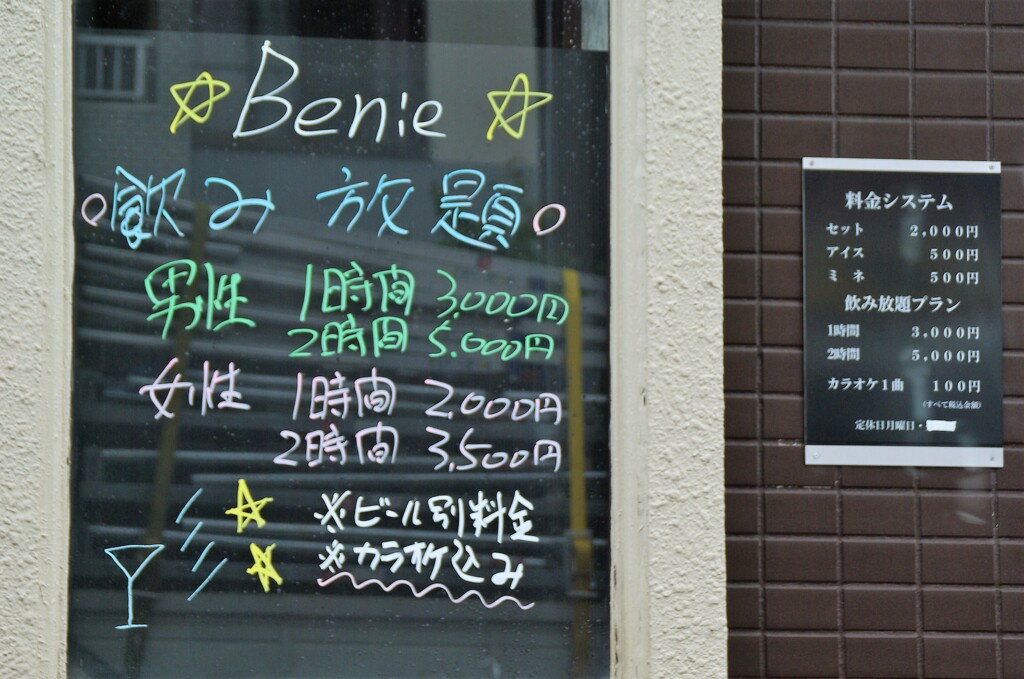 Benie
飲み放題
男性 1時間 3,000円
2時間 5,000円
女性 1時間 2,000円
2時間 3,500円
※ビール別料金
※カラオケ込み
料金システム
セット 2,000円
アイス 500円
ミネ 500円
飲み放題プラン
1時間 3,000円
2時間 5,000円
カラオケ1曲 100円
(すべて税込金額)
定休日月曜日・